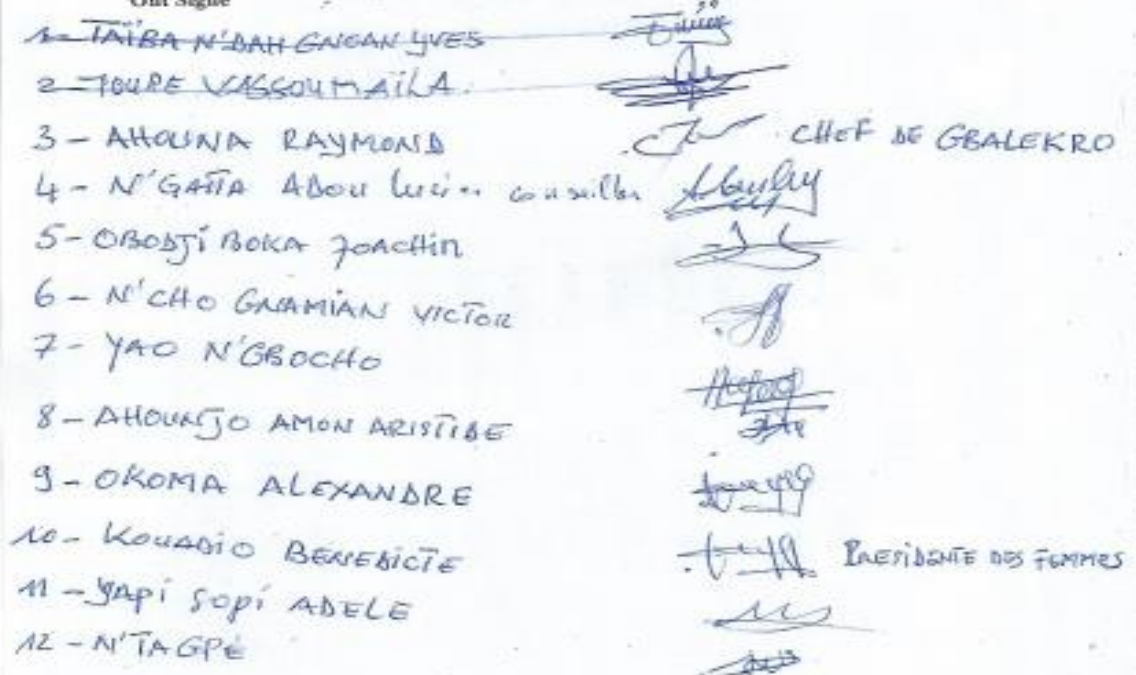 Ont Signé
1- TAÏBA N'DAH GNGAN YVES
2- TOURE VASSOUMAÏLA.
3- AHOUNA RAYMOND CHEF DE GBALEKRO
4- N'GATTA ABOU Lucien conseiller
5- OBODJI BOKA JOACHIN
6- N'CHO GNAMIAN VICTOR
7- YAO N'GBOCHO
8- AHOUNJO AMON ARISTIDE
9- OKOMA ALEXANDRE
10- KOUADIO BENEDICTE PRESIDENTE DES FEMMES
11- YAPI SOPI ADELE
12- N'TAGPE